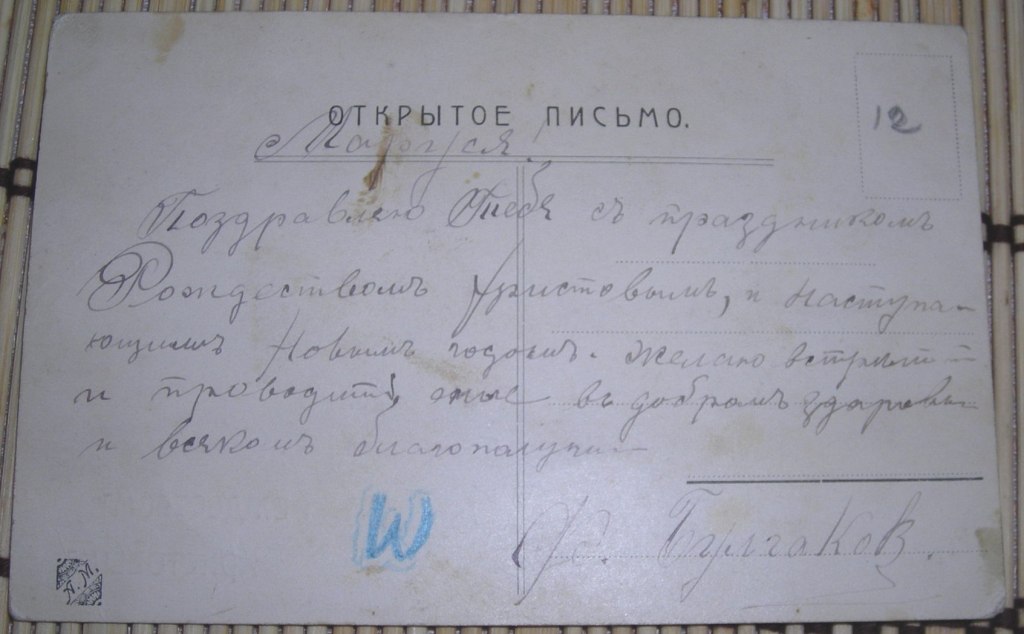 ОТКРЫТОЕ ПИСЬМО.
12
Маруся!
Поздравляю Тебя съ праздникомъ
Рождествомъ Христовымъ, и наступа-
ющимъ Новымъ годомъ. Желаю встретить
и проводить оные въ добромъ здоровьи
и всякомъ благополучии
W
Ф. Булгаков.
А.М.